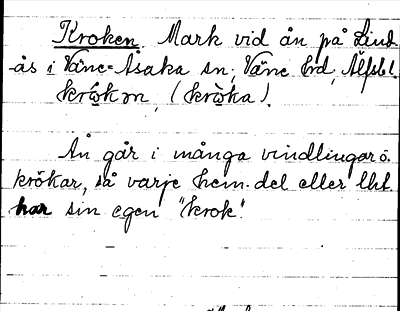 Kroken. Mark vid ån på Lind-
ås i Väne-Åsaka sn, Väne hd, Älfsbl.
krωkɷn, (krωka).
Ån går i många vindlingar o.
krökar, så varje hem. del eller lht
har sin egen "krok".